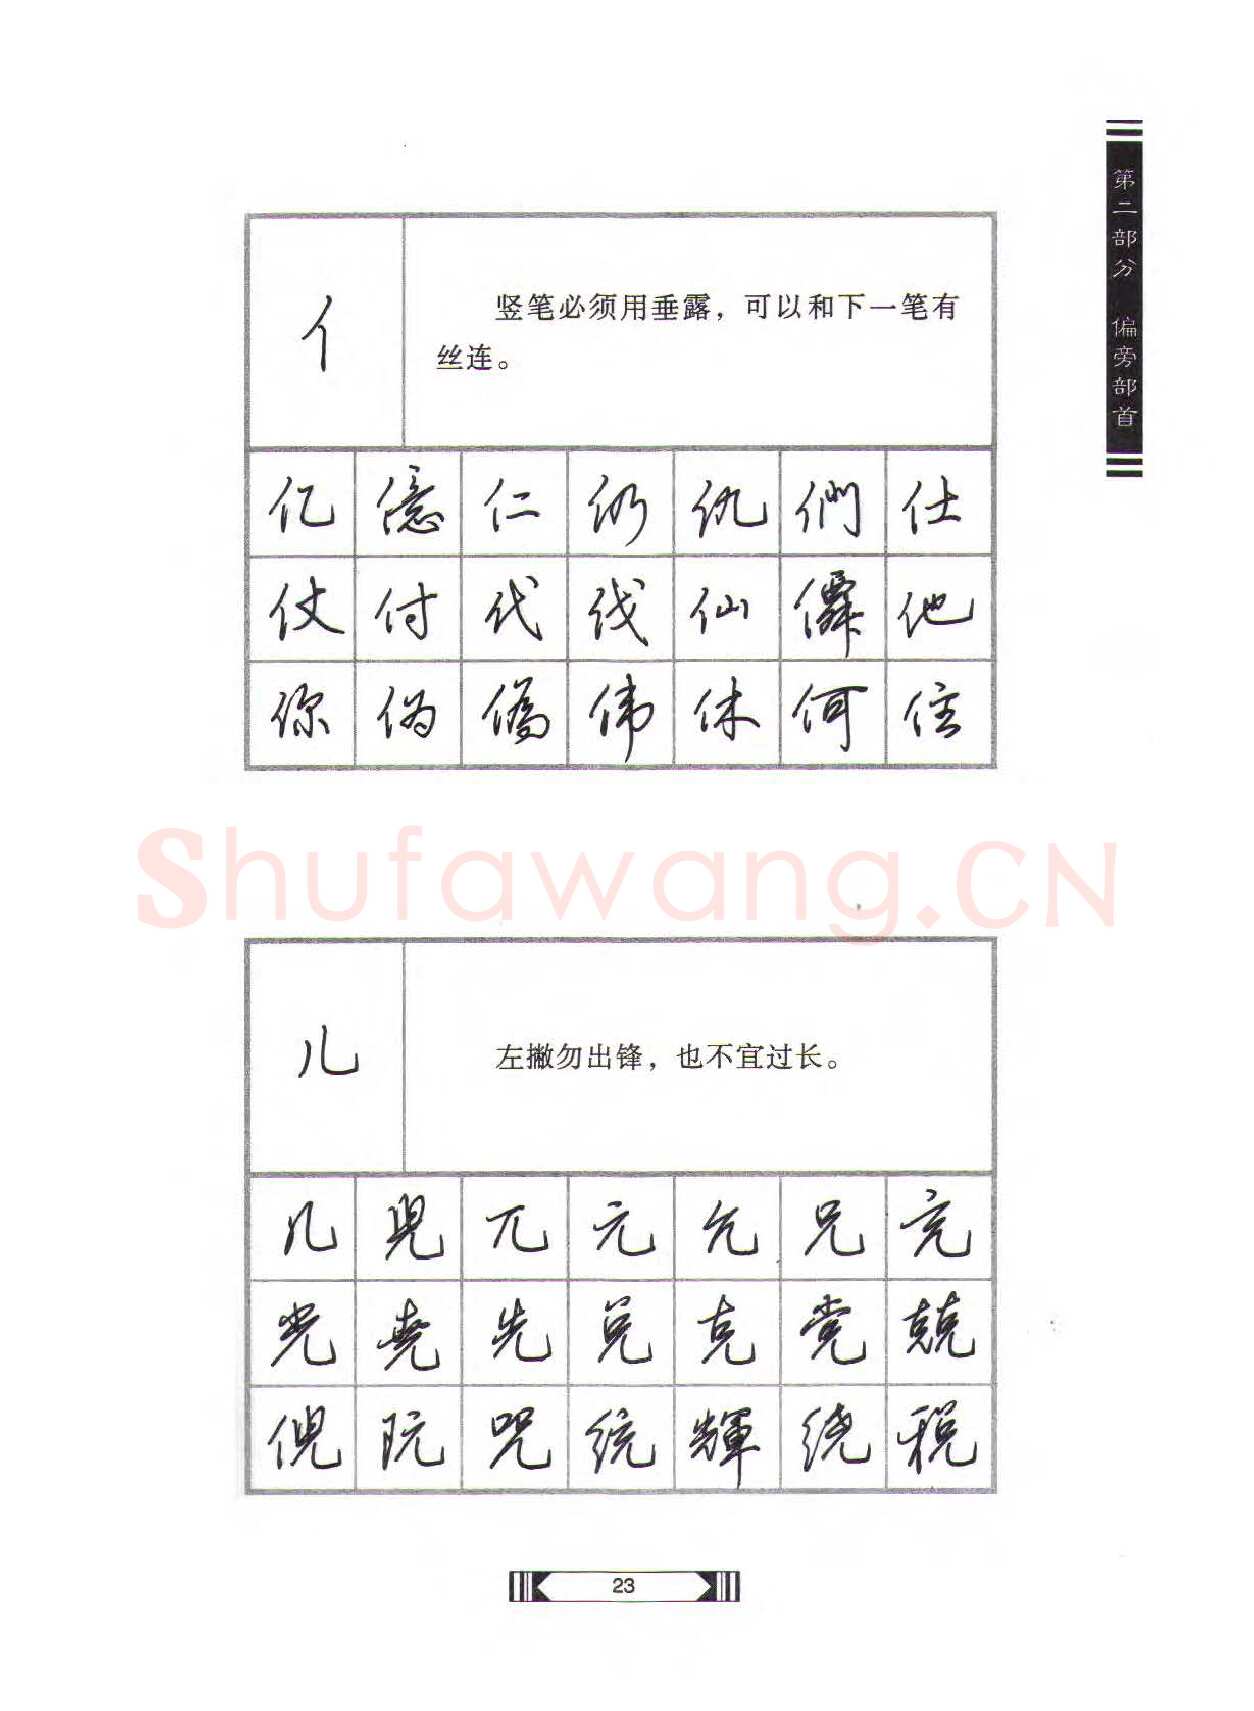 第二部分 偏旁部首
亻
竖笔必须用垂露，可以和下一笔有
丝连。
亿 億 仁 仍 仇 們 仕
仗 付 代 伐 仙 僊 他
你 伪 偽 伟 休 何 住
Shufawang.CN
儿
左撇勿出锋，也不宜过长。
儿 兒 兀 元 允 兄 亮
光 堯 先 兑 克 党 兢
倪 阮 咒 统 輝 绕 税
23